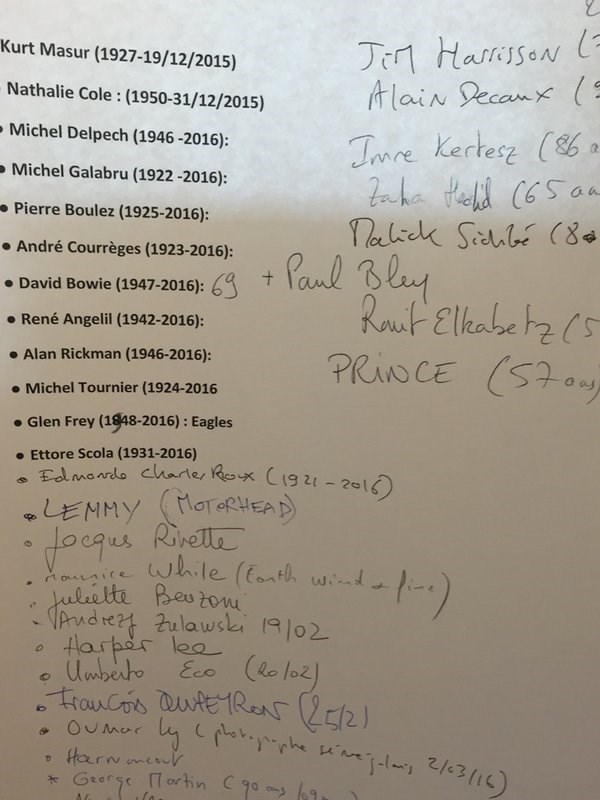 Kurt Masur (1927-19/12/2015)
• Nathalie Cole : (1950-31/12/2015)
• Michel Delpech (1946 -2016):
• Michel Galabru (1922 -2016):
• Pierre Boulez (1925-2016):
• André Courrèges (1923-2016):
• David Bowie (1947-2016): 69 + Paul Bley
• René Angelil (1942-2016):
• Alan Rickman (1946-2016):
• Michel Tournier (1924-2016
• Glen Frey (1948-2016) : Eagles
• Ettore Scola (1931-2016)
• Edmonde Charles Roux (1921-2016)
• LEMMY (MOTORHEAD)
• Jacques Rivette
• Maurice White (Earth wind & fire)
• Juliette Benzoni
• Andrezj Zulawski 19/02
• Harper lee
• Umberto Eco (20/02)
• François (25/2)
• Oumar Ly (photographe sénégalais 2/03/16)
• Harnoncourt
* George Martin (90 ans
Jim Harrisson (7
Alain Decaux (9
Imre Kertesz (86 a
Zaha Hadid (65 an
Malick Sidibé (80
Ronit Elkabetz (5
PRINCE (57 ans)